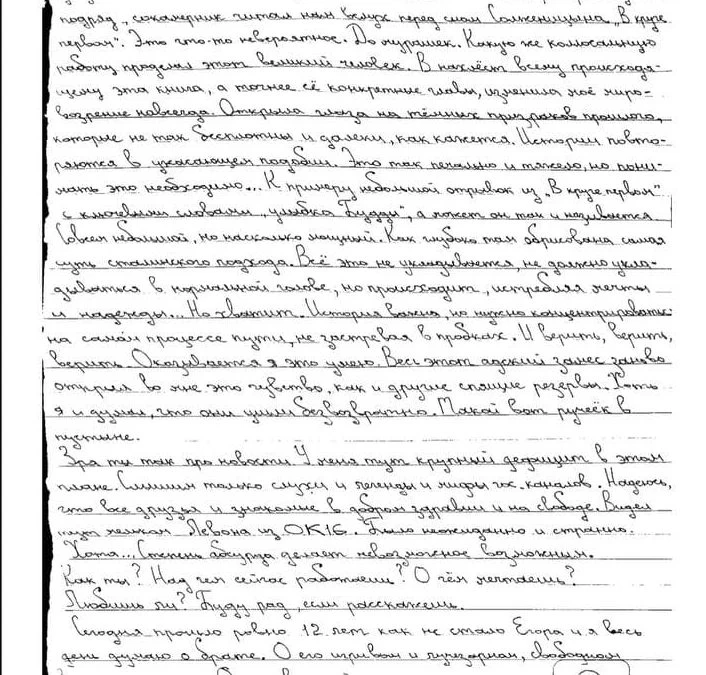 подряд, сокамерник читал нам вслух перед сном Солженицына „В круге
первом". Это что-то невероятное. До мурашек. Какую же колосальную
работу проделал этот великий человек. В нахлёст всему происходя-
щему эта книга, а точнее её конкретные главы, изменила моё миро-
воззрение навсегда. Открыла глаза на тёмных призраков прошлого,
которые не так бесплотны и далеки, как кажется. Истории повто-
ряются в ужасающем подобии. Это так печально и тяжело, но пони-
мать это необходимо... К примеру небольшой отрывок из „В круге первом"
с ключевыми словами „улыбка Будды", а может он так и называется
Совсем небольшой, но насколько мощный. Как глубоко там обрисована самая
суть сталинского подхода. Всё это не укладывается, не должно укла-
дываться в нормальной голове, но происходит, истребляя мечты
и надежды... Но хватит. История важна, но нужно концентрироваться
на самом процессе пути, не застревая в пробках. И верить, верить,
верить. Оказывается я это умею. Весь этот адский замес заново
открыл во мне это чувство, как и другие спящие резервы. Хоть
я и думал, что они ушли безвозвратно. Такой вот ручеёк в
пустыне.
Зря ты так про новости. У меня тут крупный дефицит в этом
плане. Слышим только слухи и легенды и мифы гос. каналов. Надеюсь,
что все друзья и знакомые в добром здравии и на свободе. Видел
тута мельком Левона из OK16. Было неожиданно и странно.
Хотя... Степень абсурда делает невозможное возможным.
Как ты? Над чем сейчас работаешь? О чём мечтаешь?
Любишь ли? Буду рад, если расскажешь.
Сегодня прошло ровно 12 лет как не стало Егора и я весь
день думаю о брате. О его игривом и лучезарном, свободном